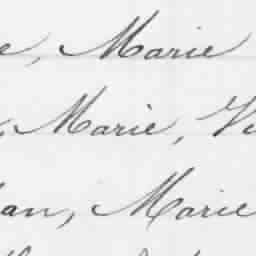 e, Marie
, Marie, Vi
an, Marie